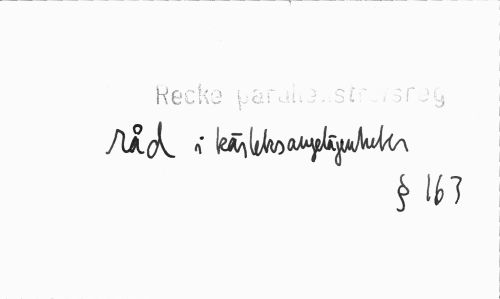 Recke
råd i kärleksangelägenheter
§ 163